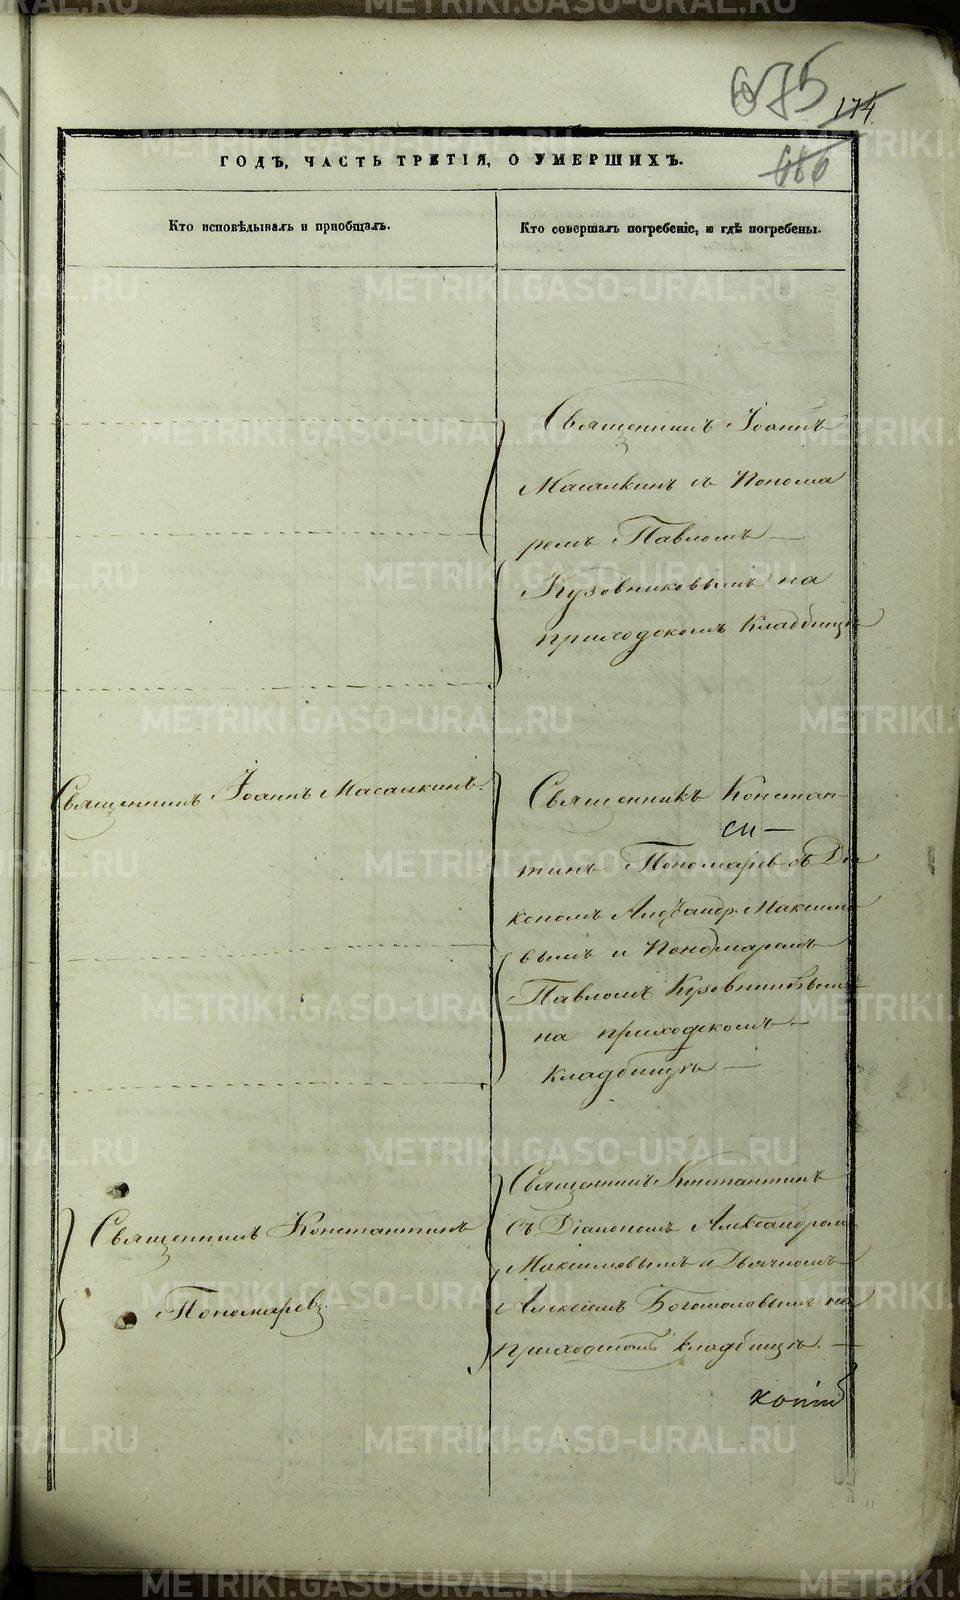 675
174.
686
ГОДЪ, ЧАСТЬ ТРЕТІЯ, О УМЕРШИХЪ.
Кто исповѣдывалъ и пріобщалъ.
Кто совершалъ погребеніе, и гдѣ погребены.
Священникъ Іоаннъ
Масалкинъ съ Понома
ремъ Павломъ —
Кузовниковымъ на
приходскомъ кладбищѣ
Священникъ Іоаннъ Масалкинъ.
Священникъ Констан
тинъ Пономарев съ Діа
кономъ Александр. Максимо
вымъ и Пономаремъ
Павломъ Кузовниковымъ
на приходскомъ —
кладбищѣ —
Священникъ Константинъ
Пономаревъ —
Священникъ Константинъ
съ Діакономъ Александромъ
Максимовымъ и Дьячкомъ
Алексіемъ Богомоловымъ на
приходскомъ кладбищѣ. —
METRIKI.GASO-URAL.RU